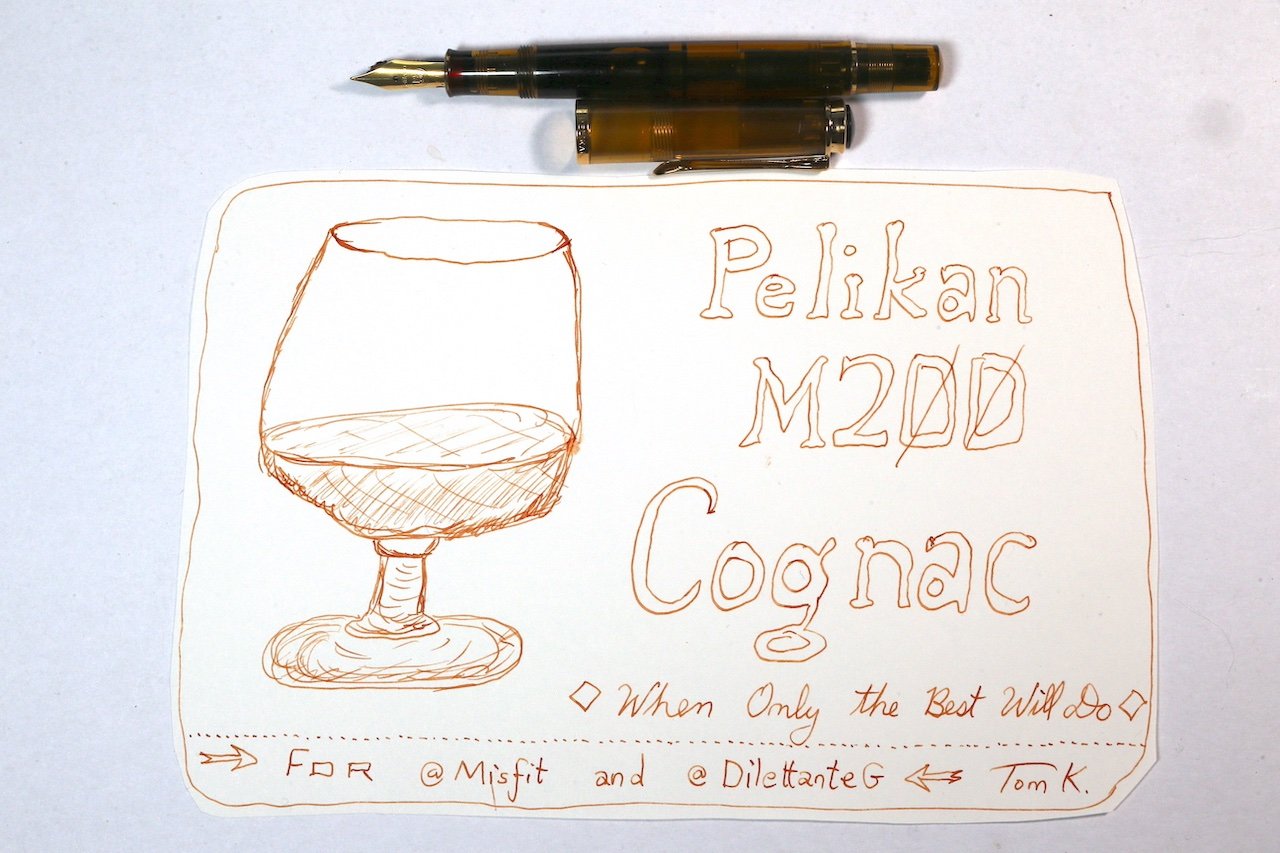 Pelikan
M200
Cognac
When Only the Best Will Do
FOR @Misfit and @DilettanteG Tom K.